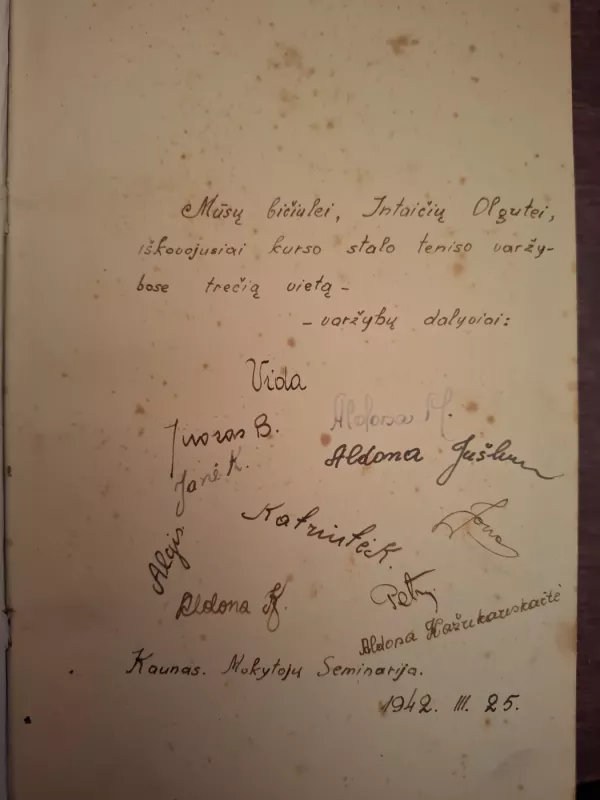 Mūsų bičiulei, Intaičių Olgutei,
iškovojusiai kurso stalo teniso varžy-
bose trečią vietą –
– varžybų dalyviai:
Vida
Juozas B.
Aldona M.
Janė K.
Aldona
Katriutė K.
Algis
Aldona K.
Aldona Kažukauskaitė
Kaunas. Mokytojų Seminarija.
1942. III. 25.